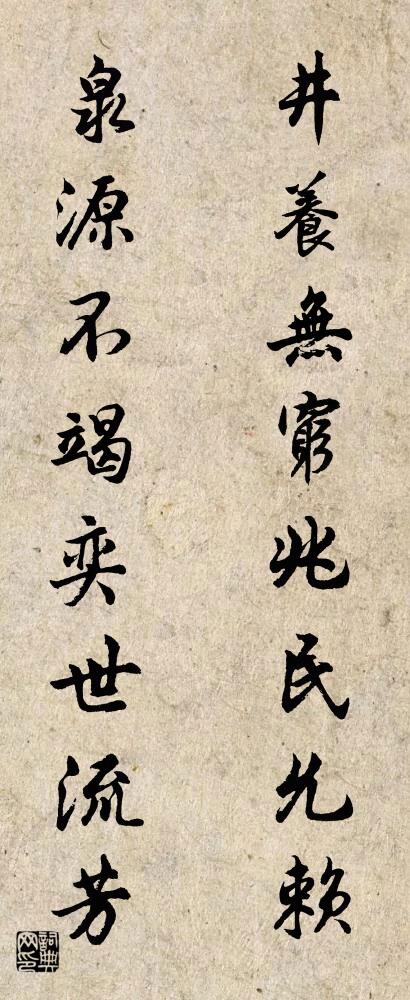 井養無窮兆民允賴
泉源不竭奕世流芳
詞典網印